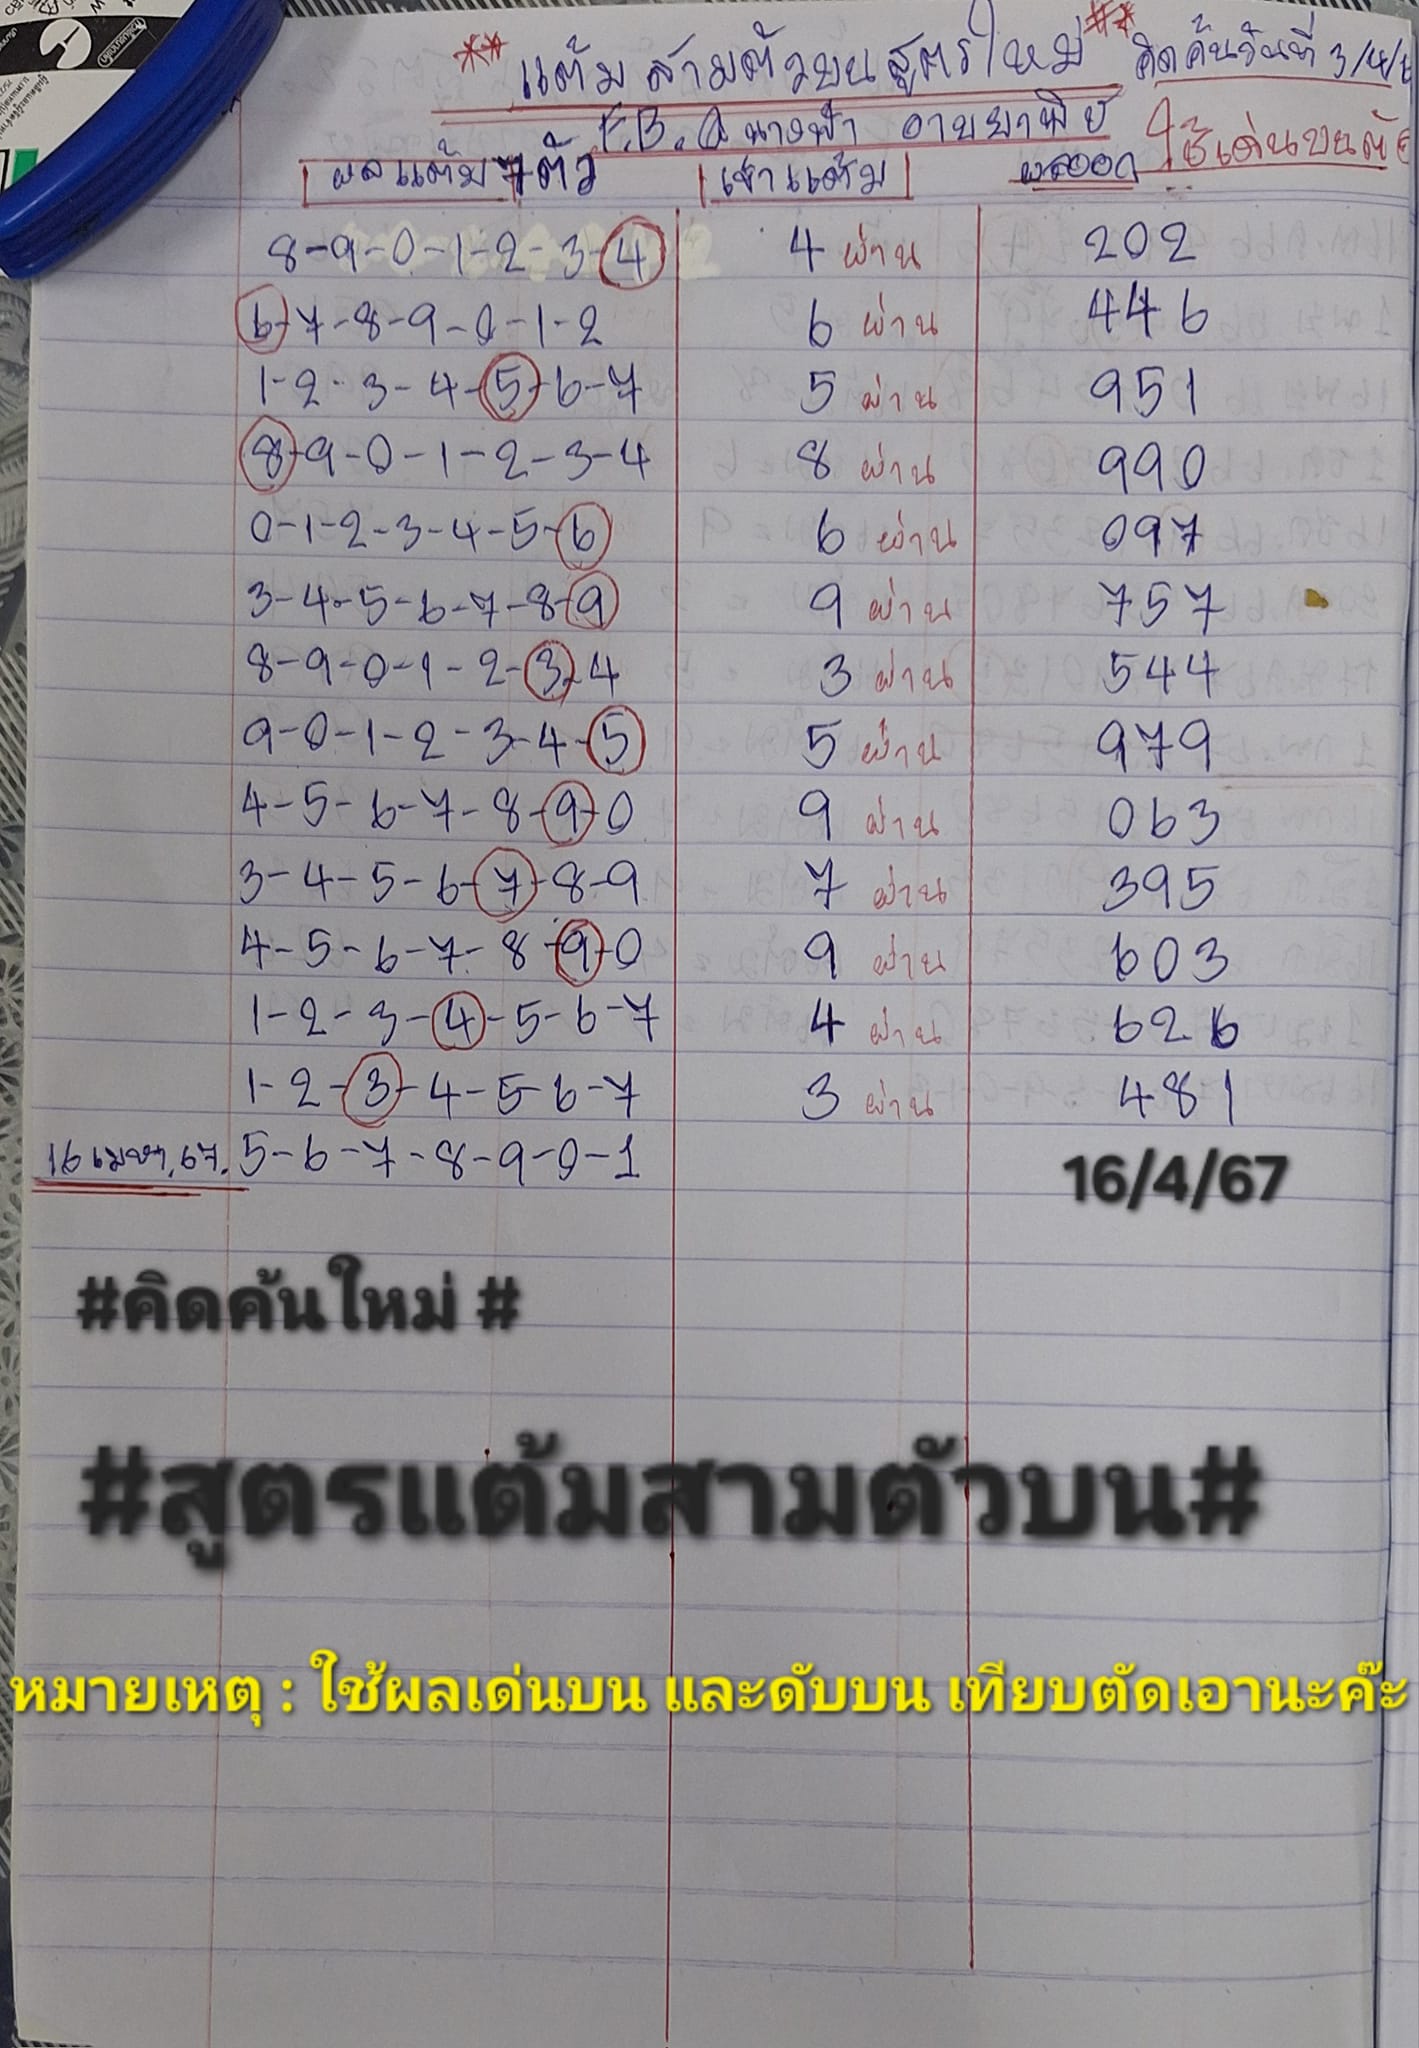 ** แต้มสามตัวบนสูตรใหม่ ** คิดค้นวันที่ 3/4/
F.B. นางฟ้า อาบยาพิษ ใช้เด่นบนตัด
ผลแต้ม 7 ตัว เข้าแต้ม ผลออก
8-9-0-1-2-3-4 4 ผ่าน 202
6-7-8-9-0-1-2 6 ผ่าน 446
1-2-3-4-5-6-7 5 ผ่าน 951
8-9-0-1-2-3-4 8 ผ่าน 990
0-1-2-3-4-5-6 6 ผ่าน 097
3-4-5-6-7-8-9 9 ผ่าน 757
8-9-0-1-2-3-4 3 ผ่าน 544
9-0-1-2-3-4-5 5 ผ่าน 979
4-5-6-7-8-9-0 9 ผ่าน 063
3-4-5-6-7-8-9 7 ผ่าน 395
4-5-6-7-8-9-0 9 ผ่าน 603
1-2-3-4-5-6-7 4 ผ่าน 626
1-2-3-4-5-6-7 3 ผ่าน 481
16 เมษา.67. 5-6-7-8-9-0-1 16/4/67
#คิดค้นใหม่ #
#สูตรแต้มสามตัวบน#
หมายเหตุ : ใช้ผลเด่นบน และดับบน เทียบตัดเอานะค๊ะ